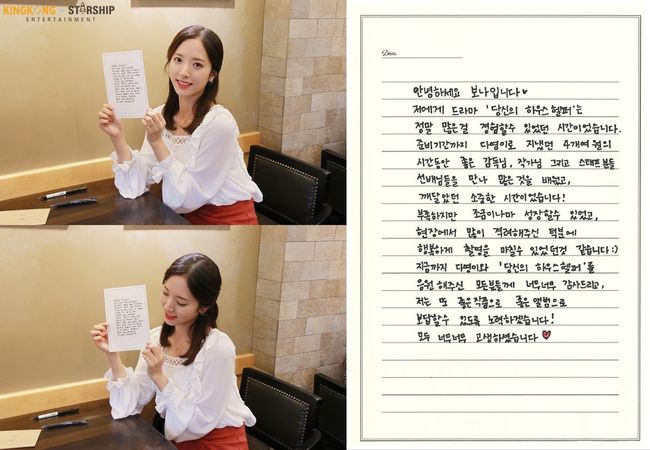 KINGKONG by STARSHIP
ENTERTAINMENT
Dear.
안녕하세요 보나입니다♥
저에게 드라마 '당신의 하우스헬퍼'는
정말 많은걸 경험할수 있었던 시간이었습니다.
준비기간까지 다영이로 지냈던 4개여월의
시간동안 좋은 감독님, 작가님 그리고 스태프분들
선배님들을 만나 많은 것을 배웠고,
깨달았던 소중한 시간이었습니다!
부족하지만 조금이나마 성장할수 있었고,
현장에서 많이 격려해주신 덕분에
행복하게 촬영을 마칠수 있었던것 같습니다:)
지금까지 다영이와 '당신의 하우스헬퍼'를
응원 해주신 모든분들께 너무너무 감사드리고,
저는 또 좋은작품으로 좋은 앨범으로
보답할수 있도록 노력하겠습니다!
모두 너무너무 고생하셨습니다♥